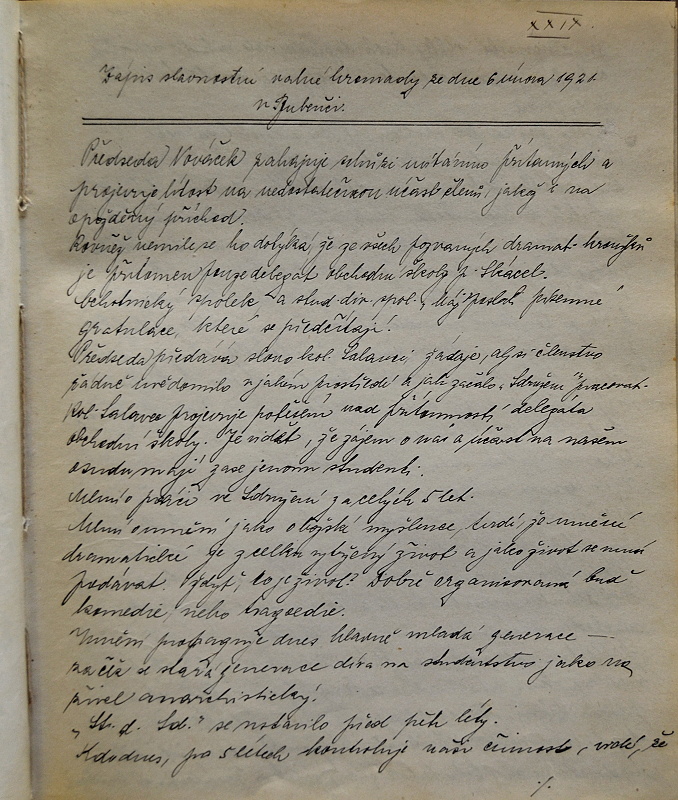 XXIX.
Zápis slavnostní valné hromady ze dne 6 února 1921.
v Bubenči.
Předseda Nováček zahajuje schůzi uvítáním přítomných a
projevuje lítost na nedostatečnou účast členů, jakož i na
opožděný příchod.
Rovněž nemile se ho dotýká, že ze všech pozvaných dramat. kroužků
je přítomen pouze delegát obchodní školy p. Skácel.
Ochotnický spolek a stud. div. spol. „Máj" poslali písemné
gratulace, které se předčítají.
Předseda předává slovo kol. Salavci žádaje, aby si členstvo
řádně uvědomilo v jakém prostředí a jak začalo „Sdružení" pracovat.
Kol. Salavec projevuje potěšení nad přítomností delegáta
obchodní školy. Je vidět, že zájem o nás a účast na našem
osudu mají zase jenom studenti.
Mluví o práci ve Sdružení za celých 5 let.
Mluví o umění jako o božské myšlence, tvrdí že umění
dramatické je z celku vybíjený život a jako život se musí
podávat. Vždyť, co je život? Dobře organisovaná buď
komedie, nebo tragoedie.
Umění propaguje dnes hlavně mladá generace —
začíž se stará generace dívá na studentstvo jako na
živel anarchistický.
„St. d. Sd." se ustavilo před pěti léty.
Kdo dnes, po 5 létech kontroluje naši činnost, vidí, že
./.